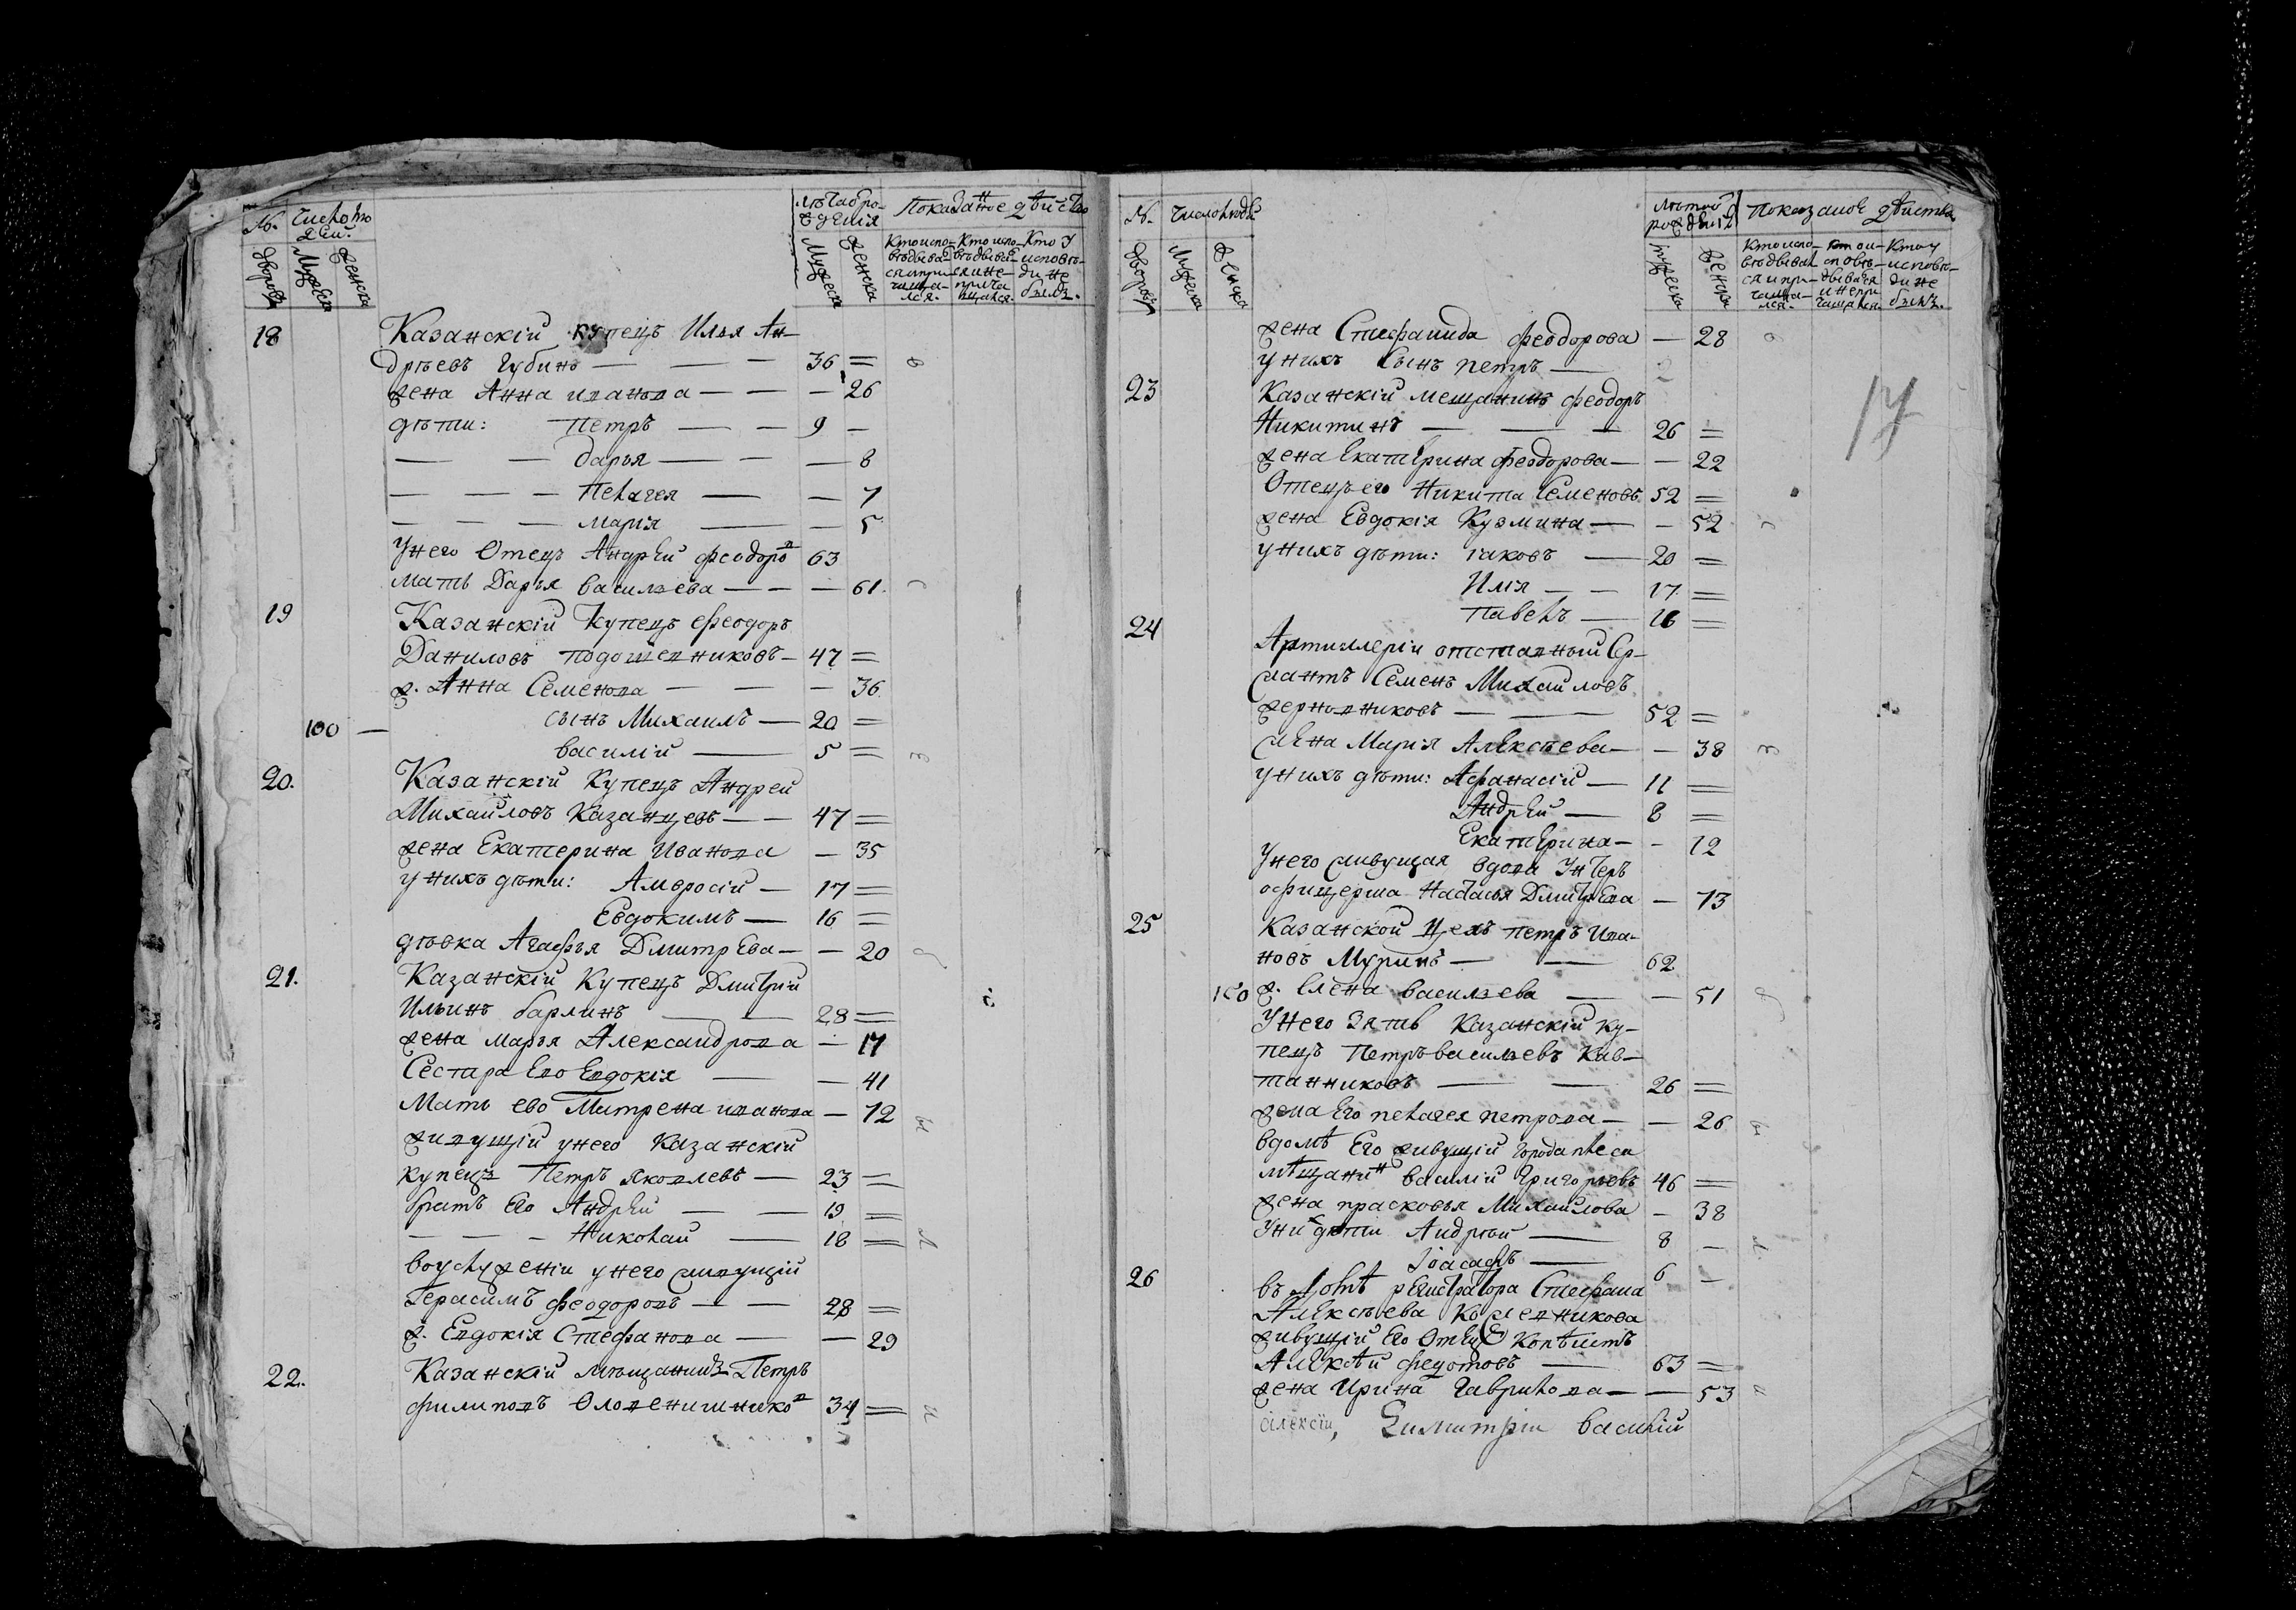 №. Число людей.
Лѣта рожденія
Показанное дѣйство
дворовъ Мужеска женска
Мужеска женска
Кто испо- Кто испо- Кто у
вѣдывал вѣдывал исповѣ-
ся и при- ся и не- ди не
чаща- прича былъ.
лся. щался.
18 Казанскій купецъ Илья Ан-
дрѣевъ Губинъ — — — 36 =
жена Анна иванова — — — 26
дѣти: Петръ — — 9 —
— — Дарья — — — 8
— — — Пелагея — — 7
— — — Марія — — 5
У него Отецъ Андрей феодоров 63
Мать Дарья васильева — — — 61.
19 Казанскій Купецъ феодоръ
Даниловъ Подошевниковъ — 47 =
ж. Анна Семенова — — — 36
100 — сынъ Михаилъ — 20 =
василій — 5 =
20. Казанскій Купецъ Андрей
Михайловъ Казанцевъ — — 47 =
жена Екатерина Иванова — 35
у нихъ дѣти: Амвросій — 17 =
Евдокимъ — 16 =
дѣвка Агафья Дмитрева — — 20
21. Казанскій Купецъ Дмитрій
Ильинъ барлинъ — — 28 =
жена марья Александрова — 17
Сестра Ево Евдокія — — 41
Мать ево Матрена иванова — 72
живущій у него Казанскій
купецъ Петръ яковлевъ — 23 =
братъ Его Андрей — — 19 =
— — — Николай — 18 =
во услуженіи у него живущій
Герасимъ феодоровъ — — 28 =
ж. Евдокія Стефанова — — 29
22. Казанскій мѣщанинъ Петръ
филиповъ 34 =
№. Число людей
Лѣта отъ рожденія
Показаное дѣйства
дворовъ Мужеска женска
мужеска женска
Кто испо- Кто ис- Кто у
вѣдывал повѣ- исповѣ-
ся и при- дывался ди не
чаща- и не при былъ.
лся. чащался.
17
жена Стефанида феодорова — 28
у нихъ Сынъ петръ —
23 Казанскій мещанинъ феодоръ
Никитинъ — — — 26 =
жена Екатерина феодорова — — 22
Отецъ его Никита Семеновъ 52 =
жена Евдокія Кузмина — — 52
у нихъ дѣти: іаковъ — 20 =
Илія — — 17 =
Павелъ — 16 =
24 Артиллеріи отставный Сер-
жантъ Семенъ Михайловъ
жерновниковъ — — 52 =
жена Марія Алексеева — — 38
у нихъ дѣти: Афанасій — 11 =
Андрей — 8 =
Екатерина — — 12
У него живущая вдова Унтеръ
офицерша Настасья Дмитрева — 73
25 Казанской Цехъ петръ Ива-
новъ Муринъ — — 62
150 ж. Елена васильева — — 51
У него Зять Казанскій ку-
пецъ Петръ васильевъ Кав-
танниковъ — — 26 =
жена Его пелагея петрова — — 26
в домѣ Его живущій города плеса
мѣщанин василій Григорьевъ 46 =
жена прасковья Михайлова — 38
У них дѣти Андрей — 8 —
Іоасафъ — 6 —
26 въ домѣ регистратора Стефана
Алексѣева Кожевникова
живущій Его Отецъ Копѣистъ
Алексѣй федотовъ — 63 =
жена Ирина Гаврилова — — 53
алексіи, Димитріи василій